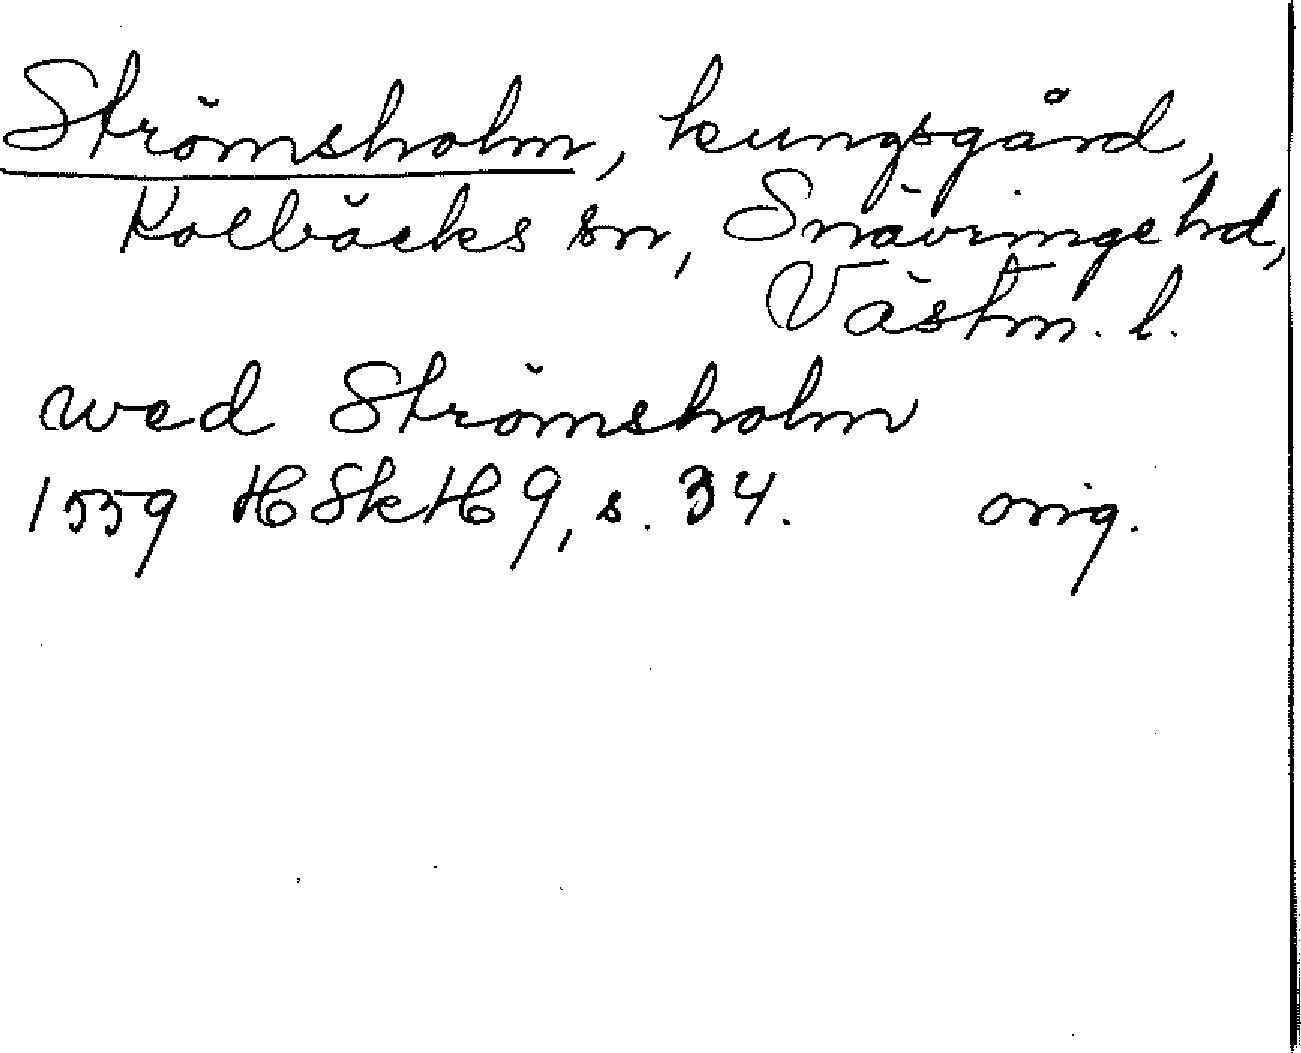 Strömsholm, kungsgård,
Kolbäcks sn, Snävringe hd,
Västm. l.
wed Strömsholm
1559 HSkH 9, s. 34. orig.